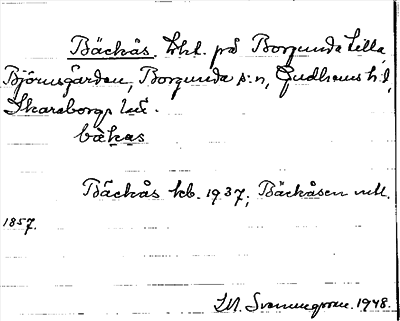 Bäckås. Lht. på Borgunda Lilla
Björnsgården, Borgunda s:n, Gudhems hd,
Skaraborgs län.
båkas
Bäckås kb. 1937; Bäckåsen
1857.
1948.